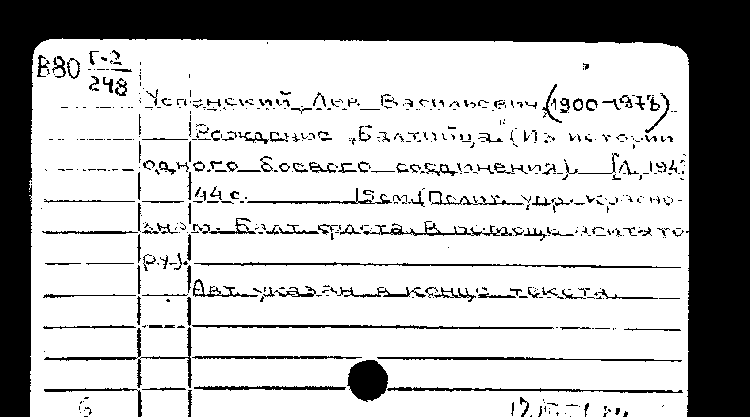 В80 Г-2
248
Успенский, Лев Васильевич, (1900-1978)
Рождение "Балтийца." (Из истории
одного боевого соединения). [Л., 194
44 с. 15 см. (Полит. упр. Красно-
знам. Балт. флота. В помощь агитато-
ру).
Авт. указан в конце текста.
6